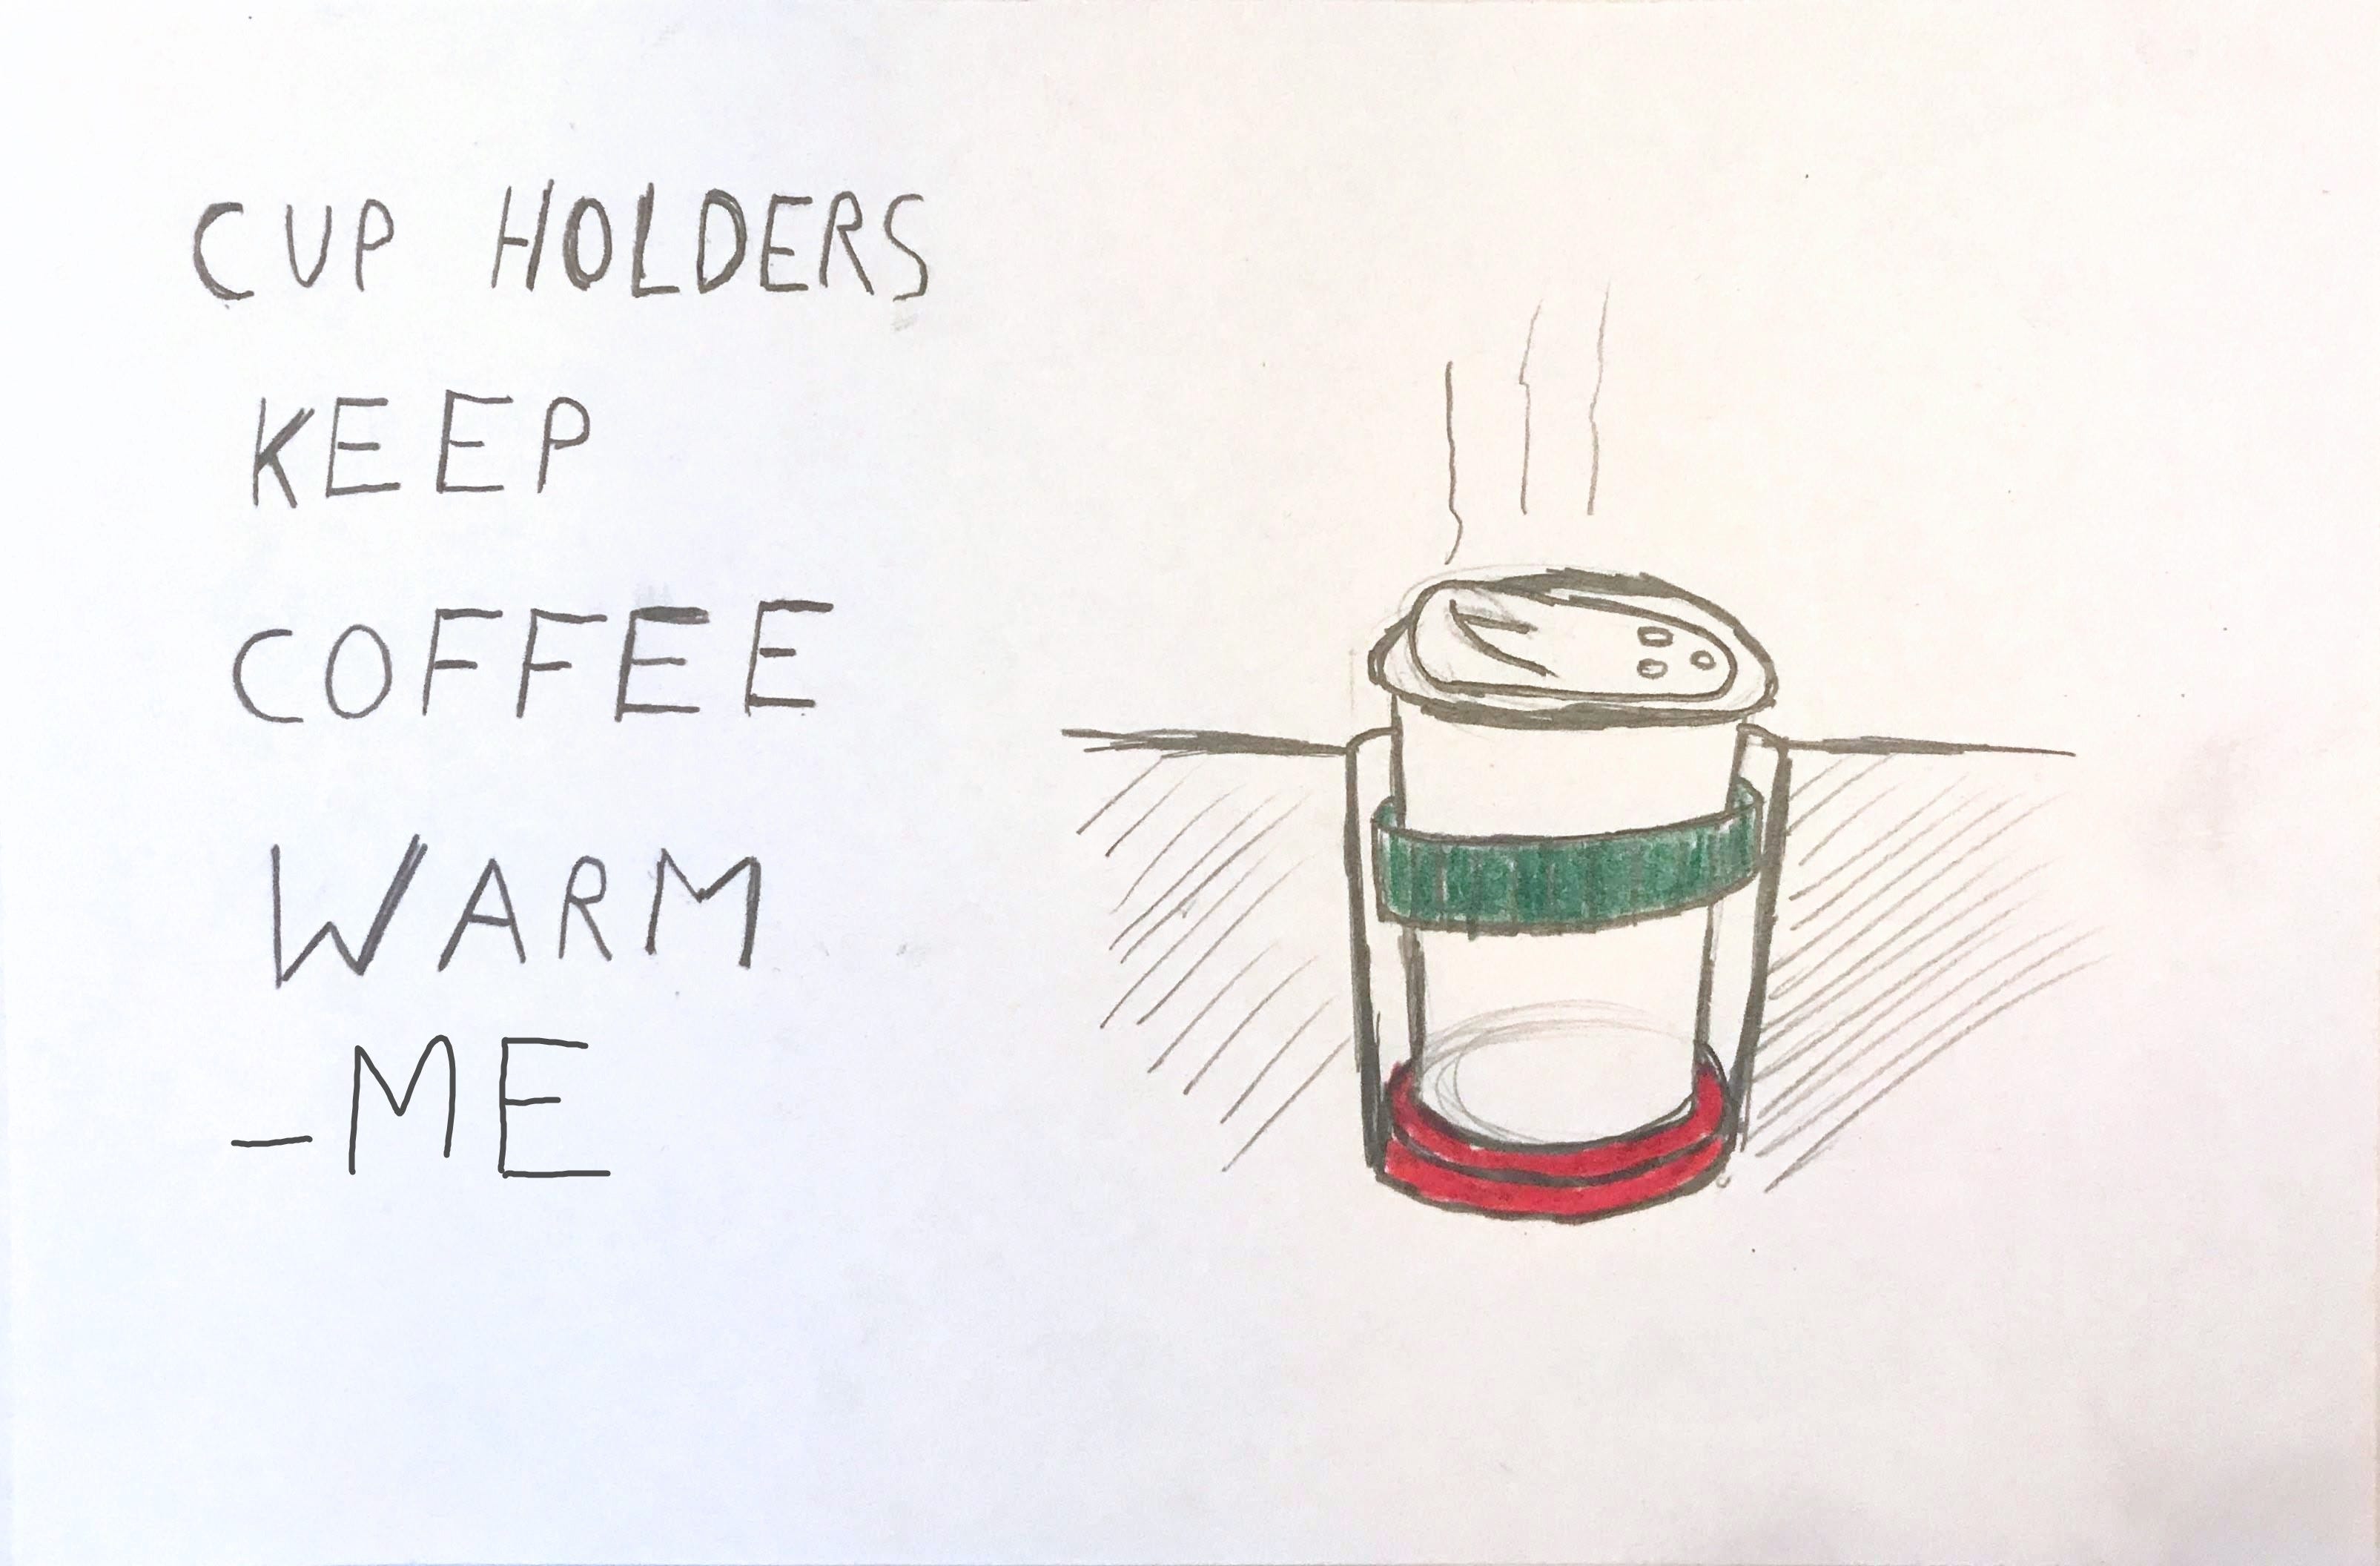 CUP HOLDERS
KEEP
COFFEE
WARM
-ME